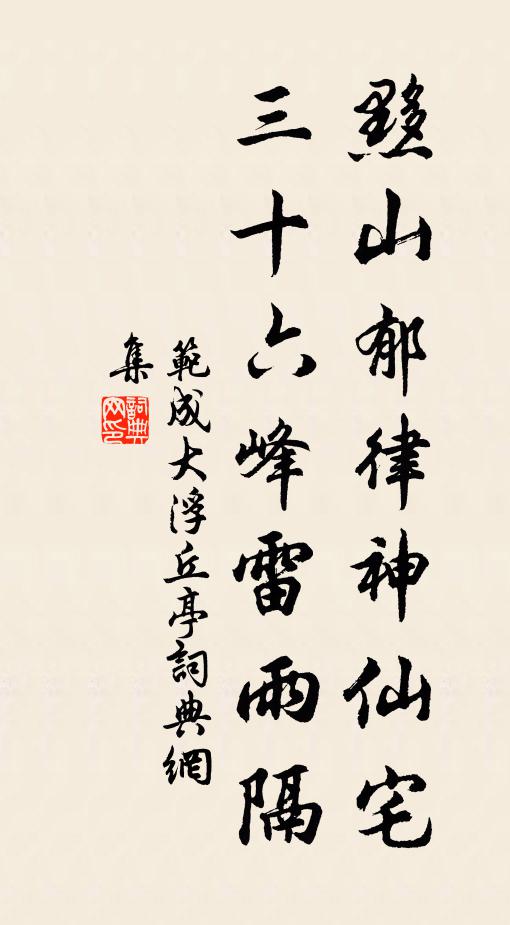 黟山郁律神仙宅
三十六峰雷雨隔
範成大浮丘亭詞典網
集
詞典網印